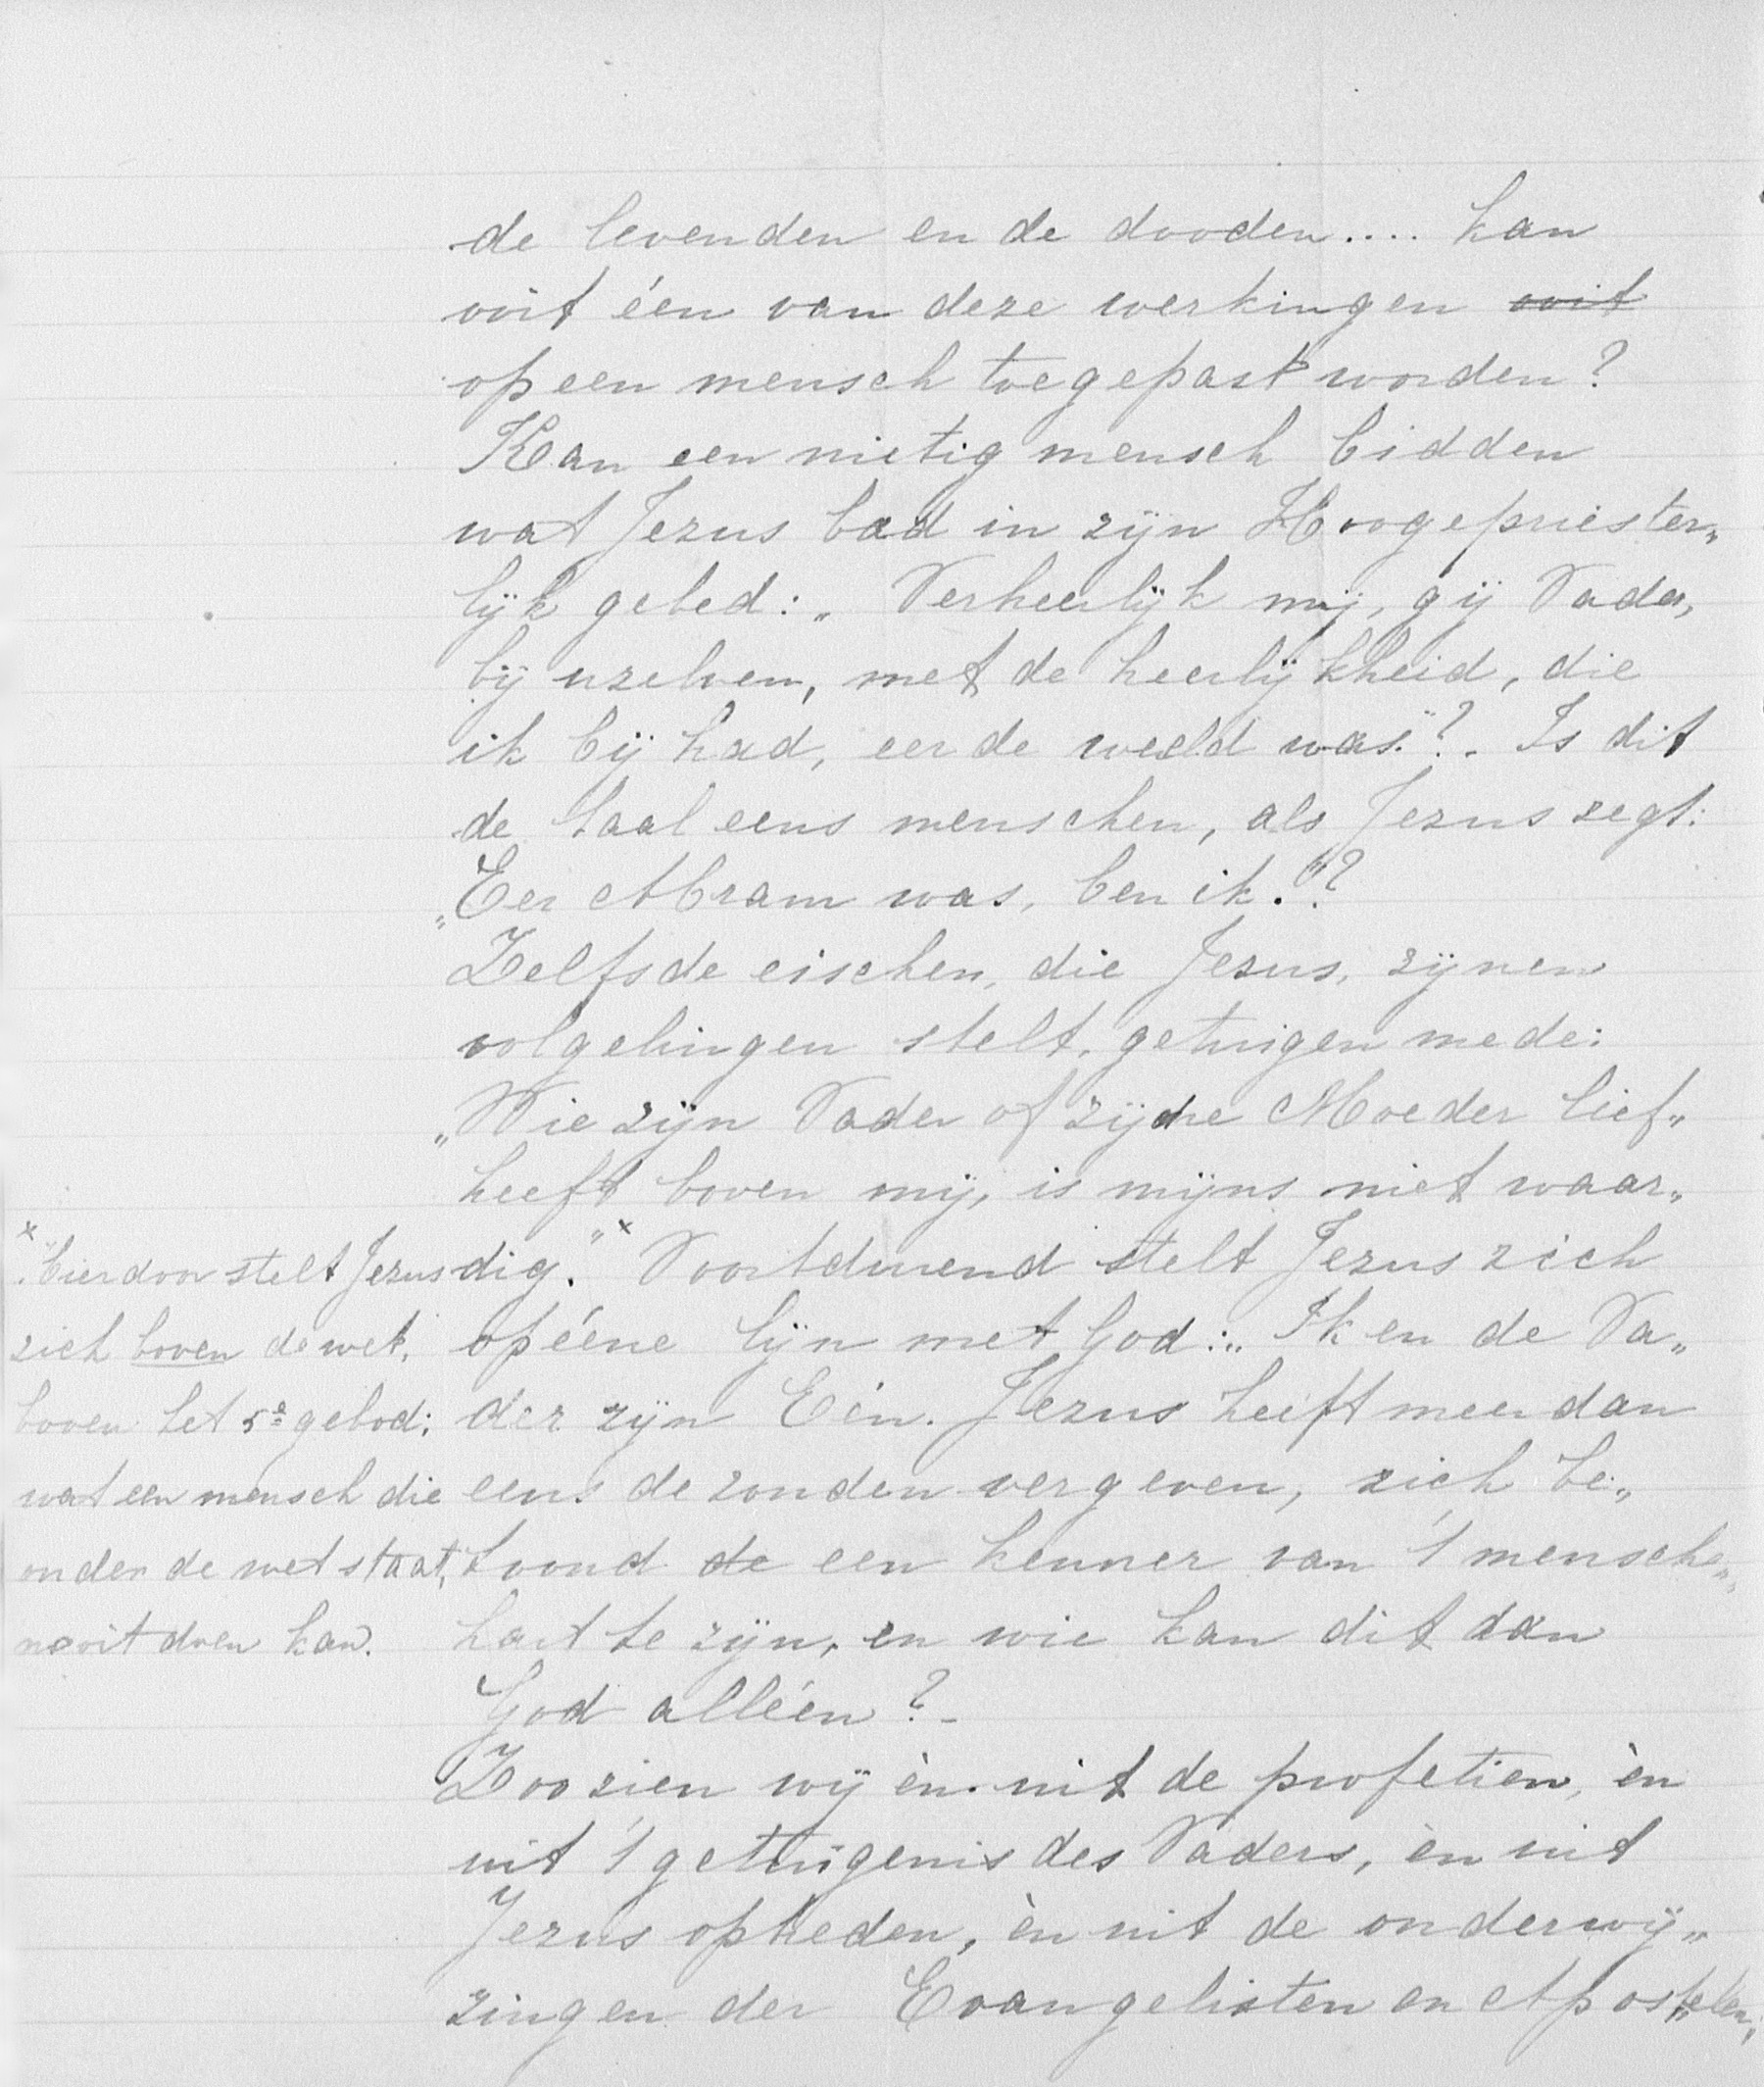 de levenden en de dooden.... kan
ooit één van deze werkingen ooit
op een mensch toegepast worden?
Kan een nietig mensch bidden
wat Jezus bad in zijn Hoogepriester„
lijk gebed: „Verheerlijk mij, gij Vader,
bij uzelven, met de heerlijkheid, die
ik bij had, eer de wereld was."? - Is dit
de taal eens menschen, als Jezus zegt:
„Eer Abram was, ben ik."?
Zelfs de eischen, die Jezus, zijnen
volgelingen stelt, getuigen mede:
„Wie zijn Vader of zijne Moeder lief„
heeft boven mij, is mijns niet waar„
dig."x Voortdurend stelt Jezus zich
op ééne lijn met God: „Ik en de Va„
der zijn Eén. Jezus heeft meer dan
eens de zonden vergeven, zich be„
toond de een kenner van 't menschen„
hart te zijn, en wie kan dit dan
God alléén? -
Zoo zien wij èn uit de profetien, èn
uit 't getuigenis des Vaders, èn uit
Jezus optreden, èn uit de onderwij„
zingen der Evangelisten en Apostelen,
x Hierdoor stelt Jezus
zich boven de wet,
boven het 5e gebod;
wat een mensch die
onder de wet staat,
nooit doen kan.